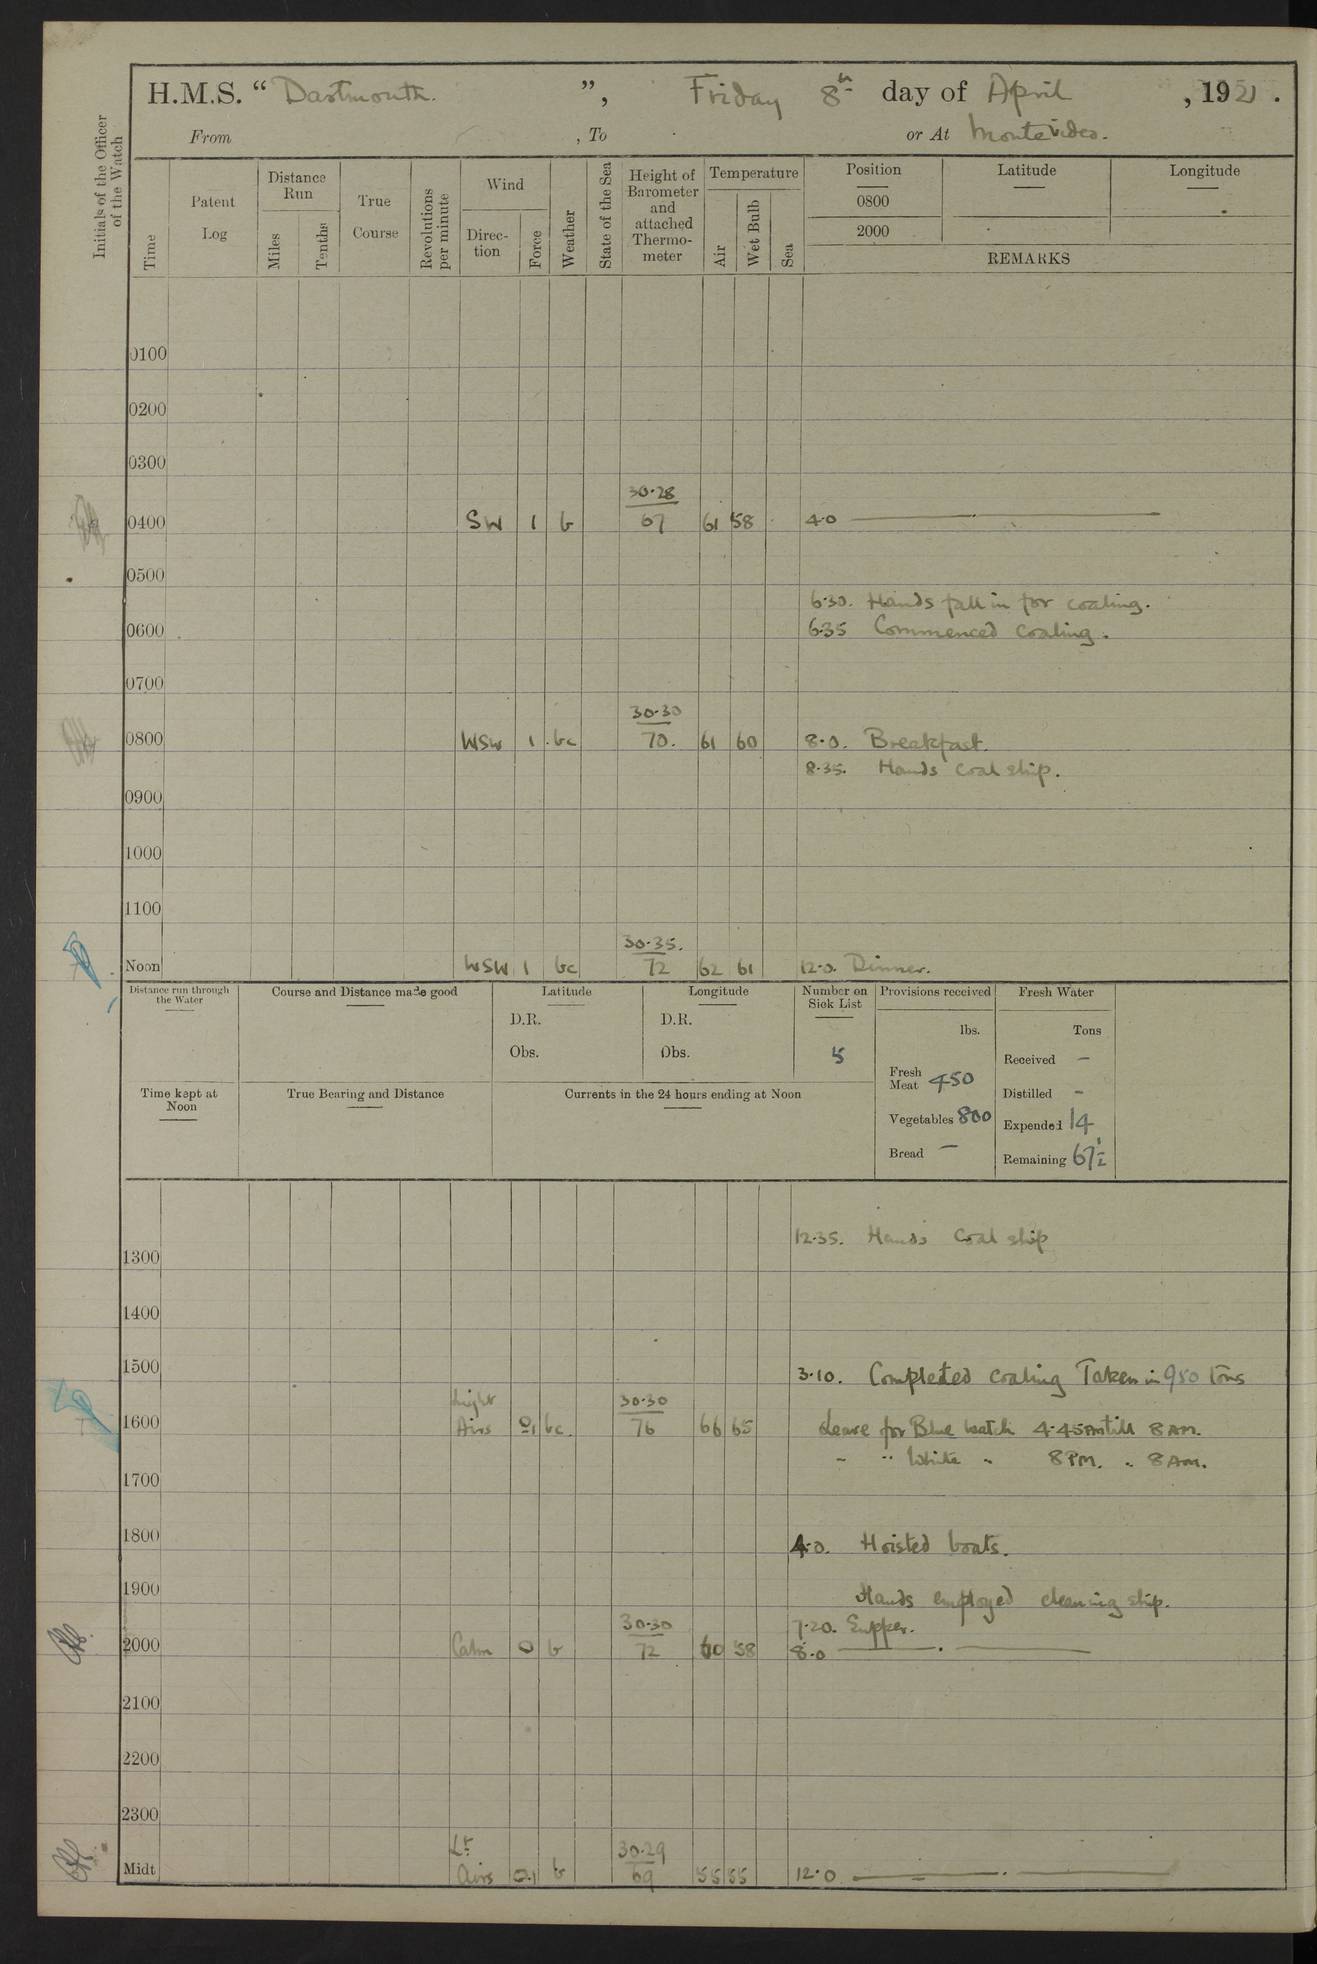 H.M.S. “ Dartmouth. ”, Friday 8th day of April , 1921 .
From , To or At Montevideo.
Initials of the Officer of the Watch
Time
Patent Log
Distance Run
Miles
Tenths
True Course
Revolutions per minute
Wind
Direc-tion
Force
Weather
State of the Sea
Height of Barometer and attached Thermo-meter
Temperature
Air
Wet Bulb
Sea
Position Latitude Longitude
0800
2000
REMARKS
0100
0200
0300
30·28
0400 SW 1 b 67 61 58 4·0
0500
6·30. Hands fall in for coaling.
0600 6·35 Commenced coaling.
0700
30·30
0800 WSW 1 bc 70. 61 60 8·0. Breakfast.
8·35. Hands coal ship.
0900
1000
1100
30·35.
Noon WSW 1 bc 72 62 61 12·0. Dinner.
Distance run through the Water
Course and Distance made good
Latitude
D.R.
Obs.
Longitude
D.R.
Obs.
Number on Sick List
5
Provisions received
lbs.
Fresh Meat 450
Vegetables 800
Bread —
Fresh Water
Tons
Received —
Distilled -
Expended 14
Remaining 67½
Time kept at Noon
True Bearing and Distance
Currents in the 24 hours ending at Noon
12·35. Hands Coal ship
1300
1400
1500 3·10. Completed coaling Taken in 950 tons
Light 30·30
1600 Airs 0.1 bc. 76 66 65 Leave for Blue watch 4·45PM till 8AM.
" " White " 8PM. " 8AM.
1700
1800 4·0. Hoisted boats.
1900 Hands employed cleaning ship.
30·30 7·20. Supper.
2000 Calm 0 b 72 60 58 8·0
2100
2200
2300
Lt 30·29
Midt Airs 0.1 b 69 55 55 12·0